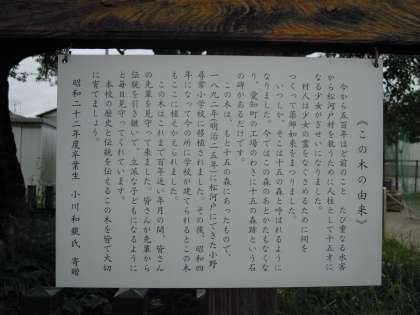 《この木の由来》
今から五百年ほど前のこと　たび重なる水害
から松河戸村を救うために人柱として十五才に
なる少女がぎせいになりました。
村人は少女の霊をなぐさめるために祠を
つくって薬師如来をまつりました。
いつしか、そこは十五の森と呼ばれるように
なりました。今ではこの森のあとかたもなくな
り、愛知町の工場のわきに十五の森跡という石
の碑があるだけです。
この木は、もと十五の森にあったもので、
一八九二年(明治二五年)に松河戸にできた小野
尋常小学校に移植されました。その後、昭和四
年になって今の所に学校が建てられるとこの木
もここに植えかえられました。
この木はこれまで百年近い年月の間、皆さん
の先輩を見守って来ました。皆さんが先輩から
伝統を引き継いで、立派な子どもになるように
と毎日見守ってくれています。
本校の歴史と伝統を伝えるこの木を皆で大切
に育てましょう。
昭和二十二年度卒業生　小川和鋭氏　寄贈